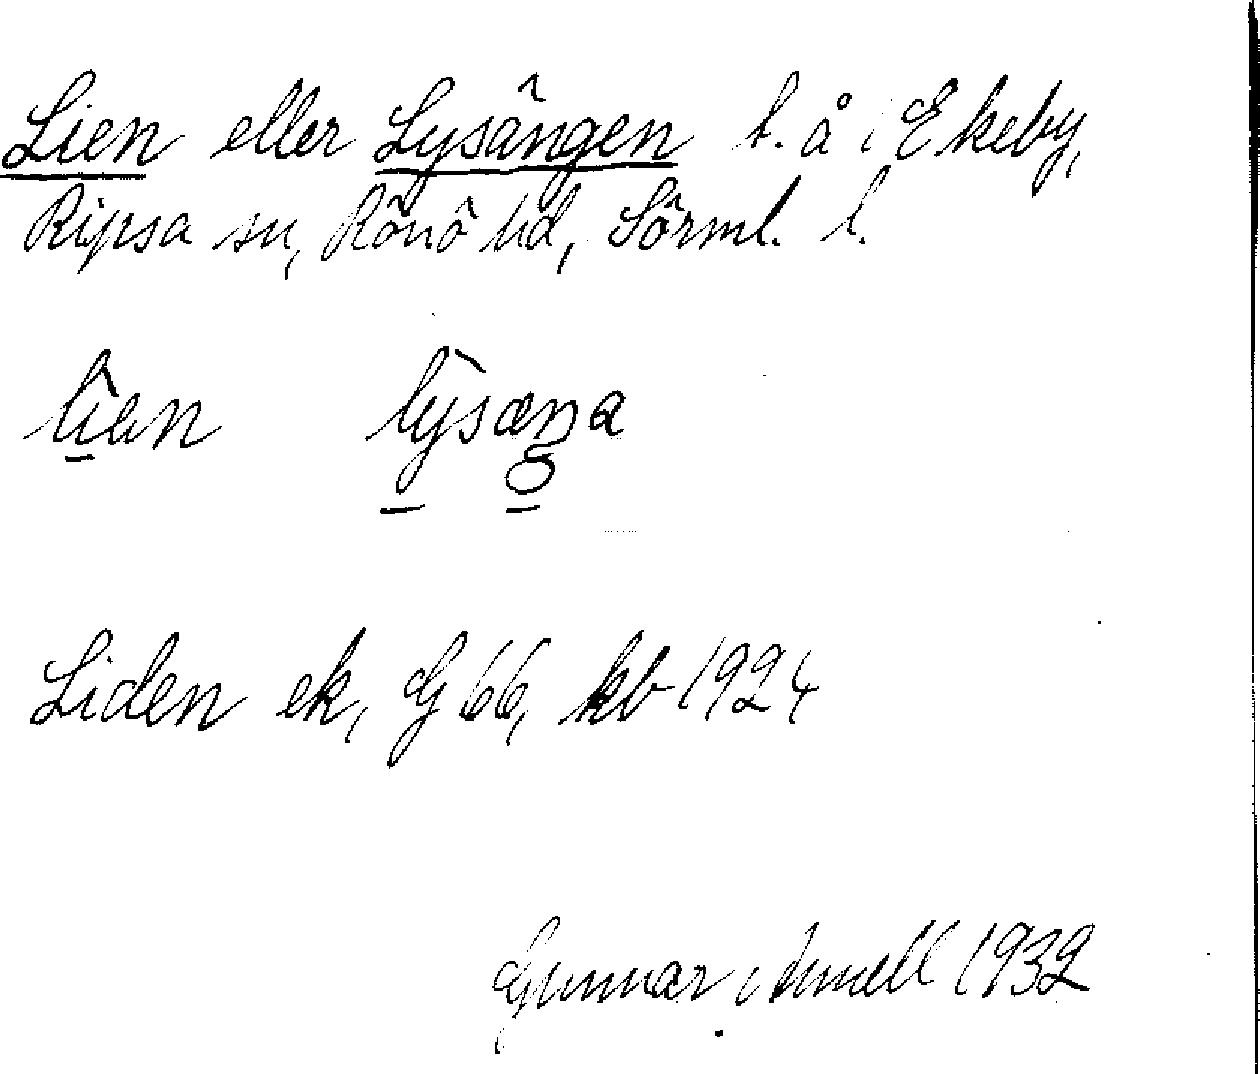 Lien eller Lysängen t. å i Ekeby,
Ripsa sn, Rönö hd, Sörml. l.
lìen lỳsæŋa
Liden ek, G 66, kb 1924
Gunnar 1932